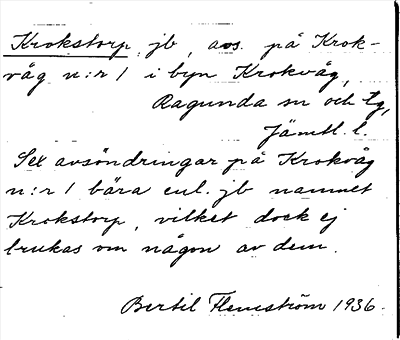 Krokstorp jb, avs. på Krok-
våg n:r 1 i byn Krokvåg,
Ragunda sn och tg,
Jämtl. l.
Sex avsöndringar på Krokvåg
n:r 1 bära enl. jb namnet
Krokstorp, vilket dock ej
brukas om någon av dem.
Bertil Flemström 1936.